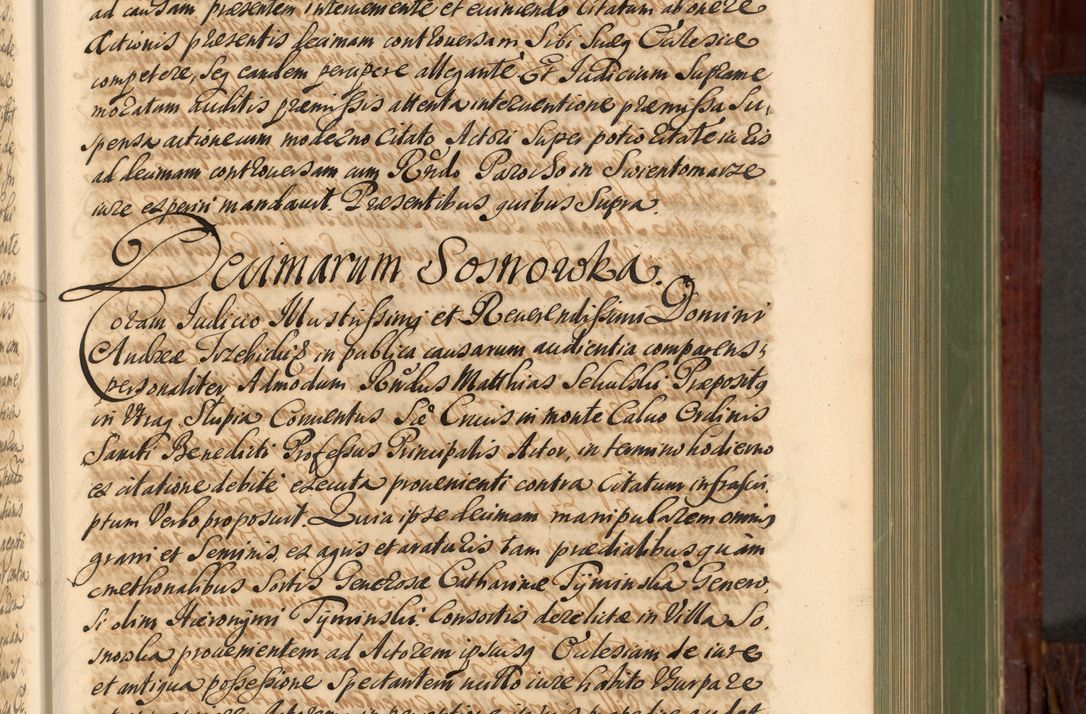 ad causam præsentem interuemente et euincendo Citatum ab onere
Actionis præsentis decimam controuersam Sibi Suæq Ecclesiæ
competere, Seq eandem percipere allegante Et Iudicium Supræme
moratum auditis præmissis attenta interuentione præmissa Su,
spensa actione cum moderno Citato Actori Super potioritate iuris
ad decimam controuersam cum Rndo Parocho in Swientomarze
iure experiri mandauit. Præsentibus quibus Supra.
Decimarum Sosnowka.
Coram Iudicio Illustrissimi et Reuerendissimi Domini
Andreæ Trzebicki & in publica causarum audientia comparens
personaliter Admodum Rndus Matthias Sekulski Præpositq
in Utraq Slupia Conuentus Sæ Crucis in monte Caluo Ordinis
Sancti Benedicti Professus Principalis Actor, in termino hodierno
ex citatione debite executa prouenienti contra Citatum infrascri,
ptum Verbo proposuit. Quia ipse decimam manipularem omnis
grani et Seminis, ex agris et araturis tam prædialibus quàm
cmethonalibus Sortis Generosæ Catharinæ Tÿminska Genero,
Si olim Hieronymi Tÿminski. Consortis derelictæ in Villa So,
snowka prouenientem ad Actorem ipsiusq Ecclesiam de iure
et antiqua possessione Spectantem nullo iure habito Usurpare